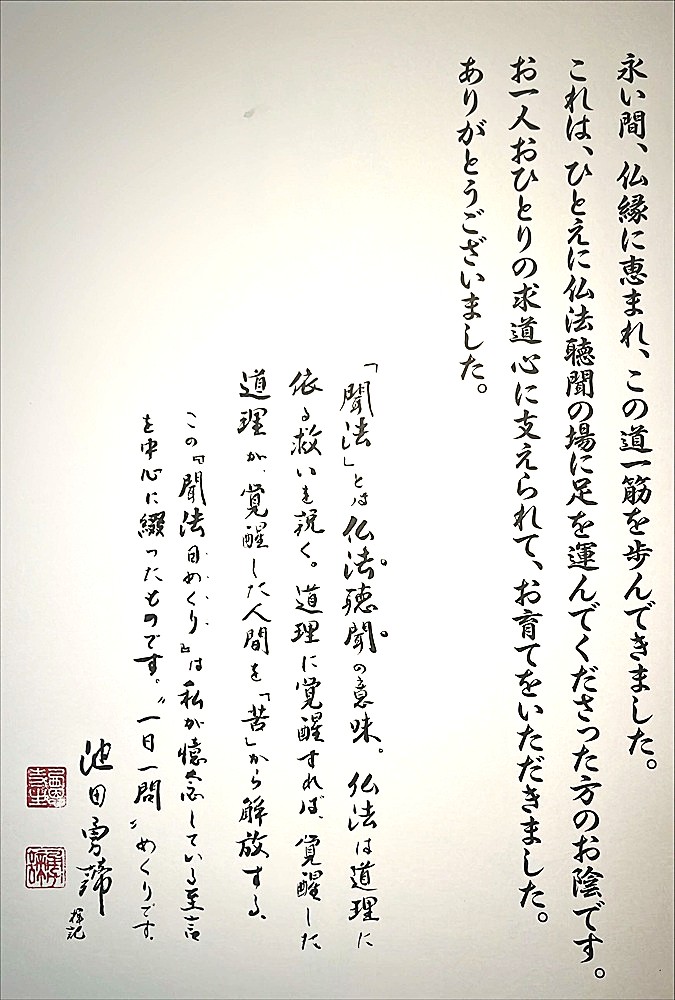 永い間、仏縁に恵まれ、この道一筋を歩んできました。
これは、ひとえに仏法聴聞の場に足を運んでくださった方のお陰です。
お一人おひとりの求道心に支えられて、お育てをいただきました。
ありがとうございました。
「聞法」とは仏法聴聞の意味。仏法は道理に
依る救いを説く。道理に覚醒すれば、覚醒した
道理が、覚醒した人間を「苦」から解放する。
この『聞法日めくり』は私が憶念している至言
を中心に綴ったものです。〝一日一問〟めくりです。
池田勇諦